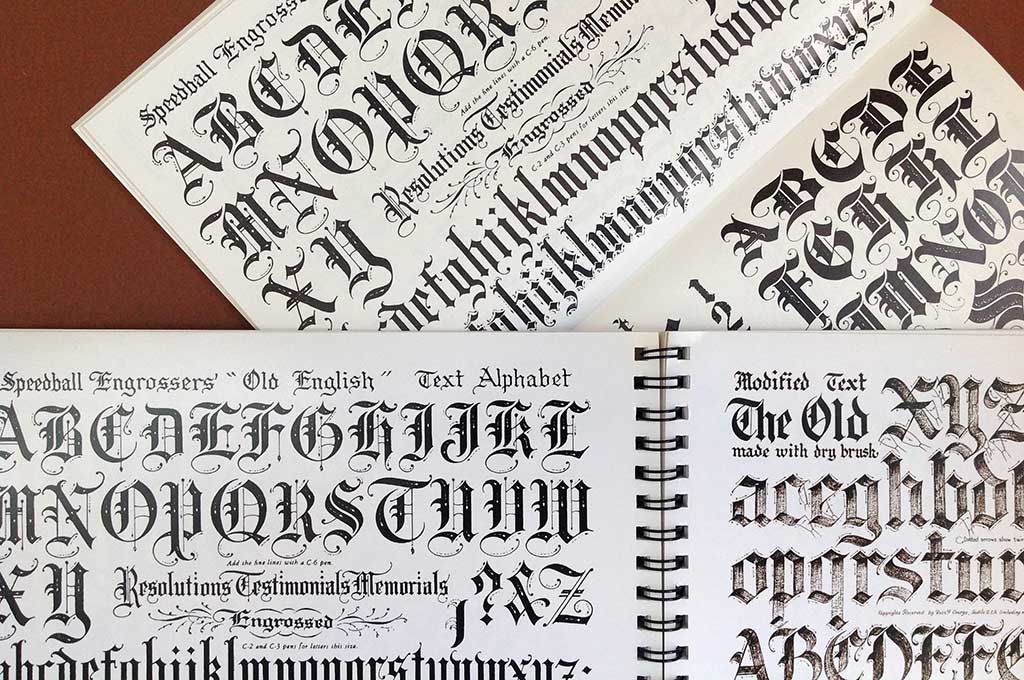 Speedball Engross
ABCDE
MNOPQR
Add the fine lines with a C-6 pen.
XY
Resolutions Testimonials Memor
Engrossed
C-2 and C-3 pens for letters this size.
defghijklmnopqrstuvw
ghijklmnopqrstuvwxyz,
ABCDE
FGHI
1 2
Speedball Engrossers' "Old English" Text Alphabet
ABCDEFGHIJKL
MNOPQRSTUVW
Add the fine lines with a C-6 pen.
XY
Resolutions Testimonials Memorials
Engrossed
C-2 and C-3 pens for letters this size.
;?&Z
abcdefghijklmnopqrstuvwxyz:
Modified Text
The Old
made with dry brush.
xyz
aceghbd
Dotted arrows show
opqrstu
ABCDEFG